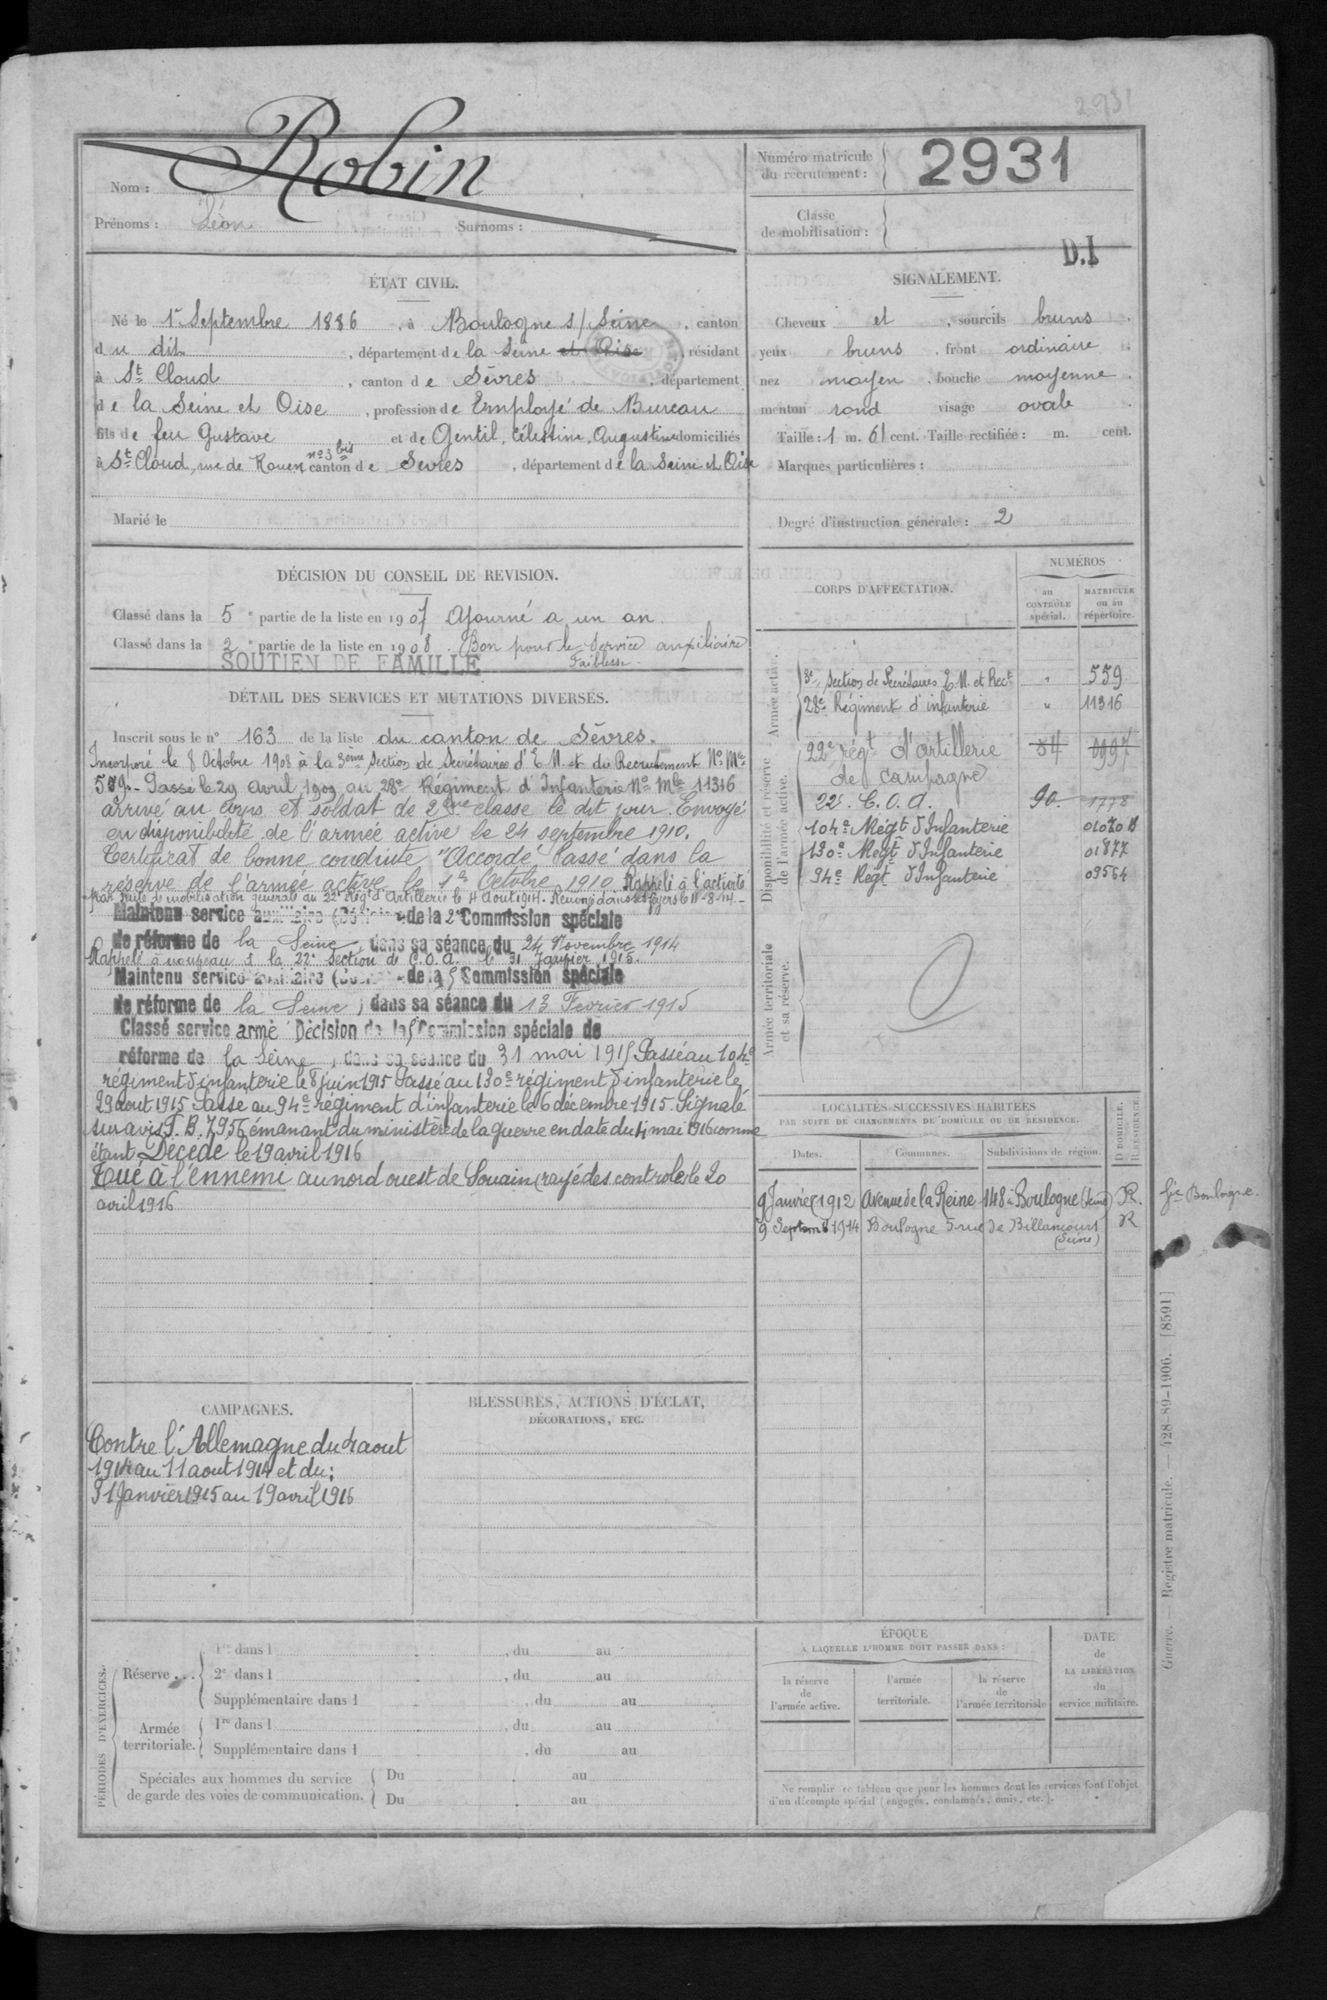 2931
Nom : Robin
Prénoms : Léon Surnoms :
Numéro matricule du recrutement : 2931
Classe de mobilisation :
D.I
ÉTAT CIVIL.
Né le 1er Septembre 1886, à Boulogne s/ Seine, canton
du dit, département de la Seine et Oise, résidant
à St Cloud, canton de Sèvres, département
de la Seine et Oise, profession de Employé de Bureau
fils de feu Gustave et de Gentil, Célestine, Augustine domiciliés
à St Cloud, rue de Rouen no 3 bis canton de Sèvres, département de la Seine et Oise
Marié le
SIGNALEMENT.
Cheveux et, sourcils bruns.
yeux bruns, front ordinaire.
nez moyen, bouche moyenne.
menton rond visage ovale
Taille : 1 m. 61 cent. Taille rectifiée : m. cent.
Marques particulières :
Degré d'instruction générale : 2
DÉCISION DU CONSEIL DE REVISION.
Classé dans la 5e partie de la liste en 1907 Ajourné à un an.
Classé dans la 2e partie de la liste en 1908. Bon pour le Service auxiliaire
SOUTIEN DE FAMILLE Faiblesse.
DÉTAIL DES SERVICES ET MUTATIONS DIVERSES.
Inscrit sous le n° 163 de la liste du canton de Sèvres.
Incorporé le 8 Octobre 1908 à la 3ème Section de Secrétaires d'E. M. et du Recrutement No Mle
559. Passé le 29 avril 1909 au 28e Régiment d'Infanterie No Mle 11316
arrivé au corps et soldat de 2ème classe le dit jour. Envoyé
en disponibilité de l'armée active le 24 septembre 1910.
Certificat de bonne conduite "Accordé" Passé dans la
réserve de l'armée active le 1er Octobre 1910. Rappelé à l'activité
par suite de mobilisation générale au 22e Régt d'Artillerie le 4 Aout 1914. Renvoyé dans ses foyers le 11-8-14.
Maintenu service auxiliaire de la 2e Commission spéciale
de réforme de la Seine, dans sa séance du 24 Novembre 1914
Rappelé à nouveau à la 22e Section de C.O.A. le 31 Janvier 1915.
Maintenu service auxiliaire de la 5e Commission spéciale
de réforme de la Seine, dans sa séance du 13 Février 1915
Classé service armé Décision de la 5e Commission spéciale de
réforme de la Seine, dans sa séance du 31 mai 1915 Passé au 104e
régiment d'infanterie le 8 juin 1915 Passé au 130e régiment d'infanterie le
29 aout 1915 Passé au 94e régiment d'infanterie le 6 décembre 1915. Signalé
sur avis P. B. 7956 émanant du ministère de la guerre en date du 4 mai 1916 comme
étant Décédé le 19 avril 1916
Tué à l'ennemi au nord ouest de Souain (rayé des controles le 20
avril 1916
CORPS D'AFFECTATION.
NUMÉROS
au CONTRÔLE spécial.
MATRICULE ou au répertoire.
Armée active.
3e Section de Secrétaires E. M. et Rect " 559
28e Régiment d'infanterie " 11316
Disponibilité et réserve de l'armée active.
22e régt d'artillerie de campagne 84 9997
22e C. O. A. 90 1778
104e Régt d'Infanterie 01070 B
130e Régt d'Infanterie 01877
94e Regt d'Infanterie 09564
Armée territoriale et sa réserve.
LOCALITÉS SUCCESSIVES HABITÉES
PAR SUITE DE CHANGEMENTS DE DOMICILE OU DE RÉSIDENCE.
Dates. Communes. Subdivisions de région. D DOMICILE. R RÉSIDENCE.
9 Janvier 1912 Avenue de la Reine 148 à Boulogne (Seine) R.
9 Septemb 1914 Boulogne 5 rue de Billancourt (Seine) R
Boulogne.
CAMPAGNES.
Contre l'Allemagne du 4 aout
1914 au 11 aout 1914 et du :
31 Janvier 1915 au 19 avril 1916
BLESSURES, ACTIONS D'ÉCLAT,
DÉCORATIONS, ETC.
PÉRIODES D'EXERCICES.
Réserve ...
1re dans l , du au
2e dans l , du au
Supplémentaire dans l , du au
Armée territoriale.
1re dans l , du au
Supplémentaire dans l , du au
Spéciales aux hommes du service
de garde des voies de communication.
Du au
Du au
ÉPOQUE
À LAQUELLE L'HOMME DOIT PASSER DANS :
la réserve de l'armée active.
l'armée territoriale.
la réserve de l'armée territoriale
DATE de LA LIBÉRATION du service militaire.
Ne remplir ce tableau que pour les hommes dont les services font l'objet
d'un décompte spécial (engagés, condamnés, omis, etc.).
Guerre. — Registre matricule. — 428-89-1906. [8591]